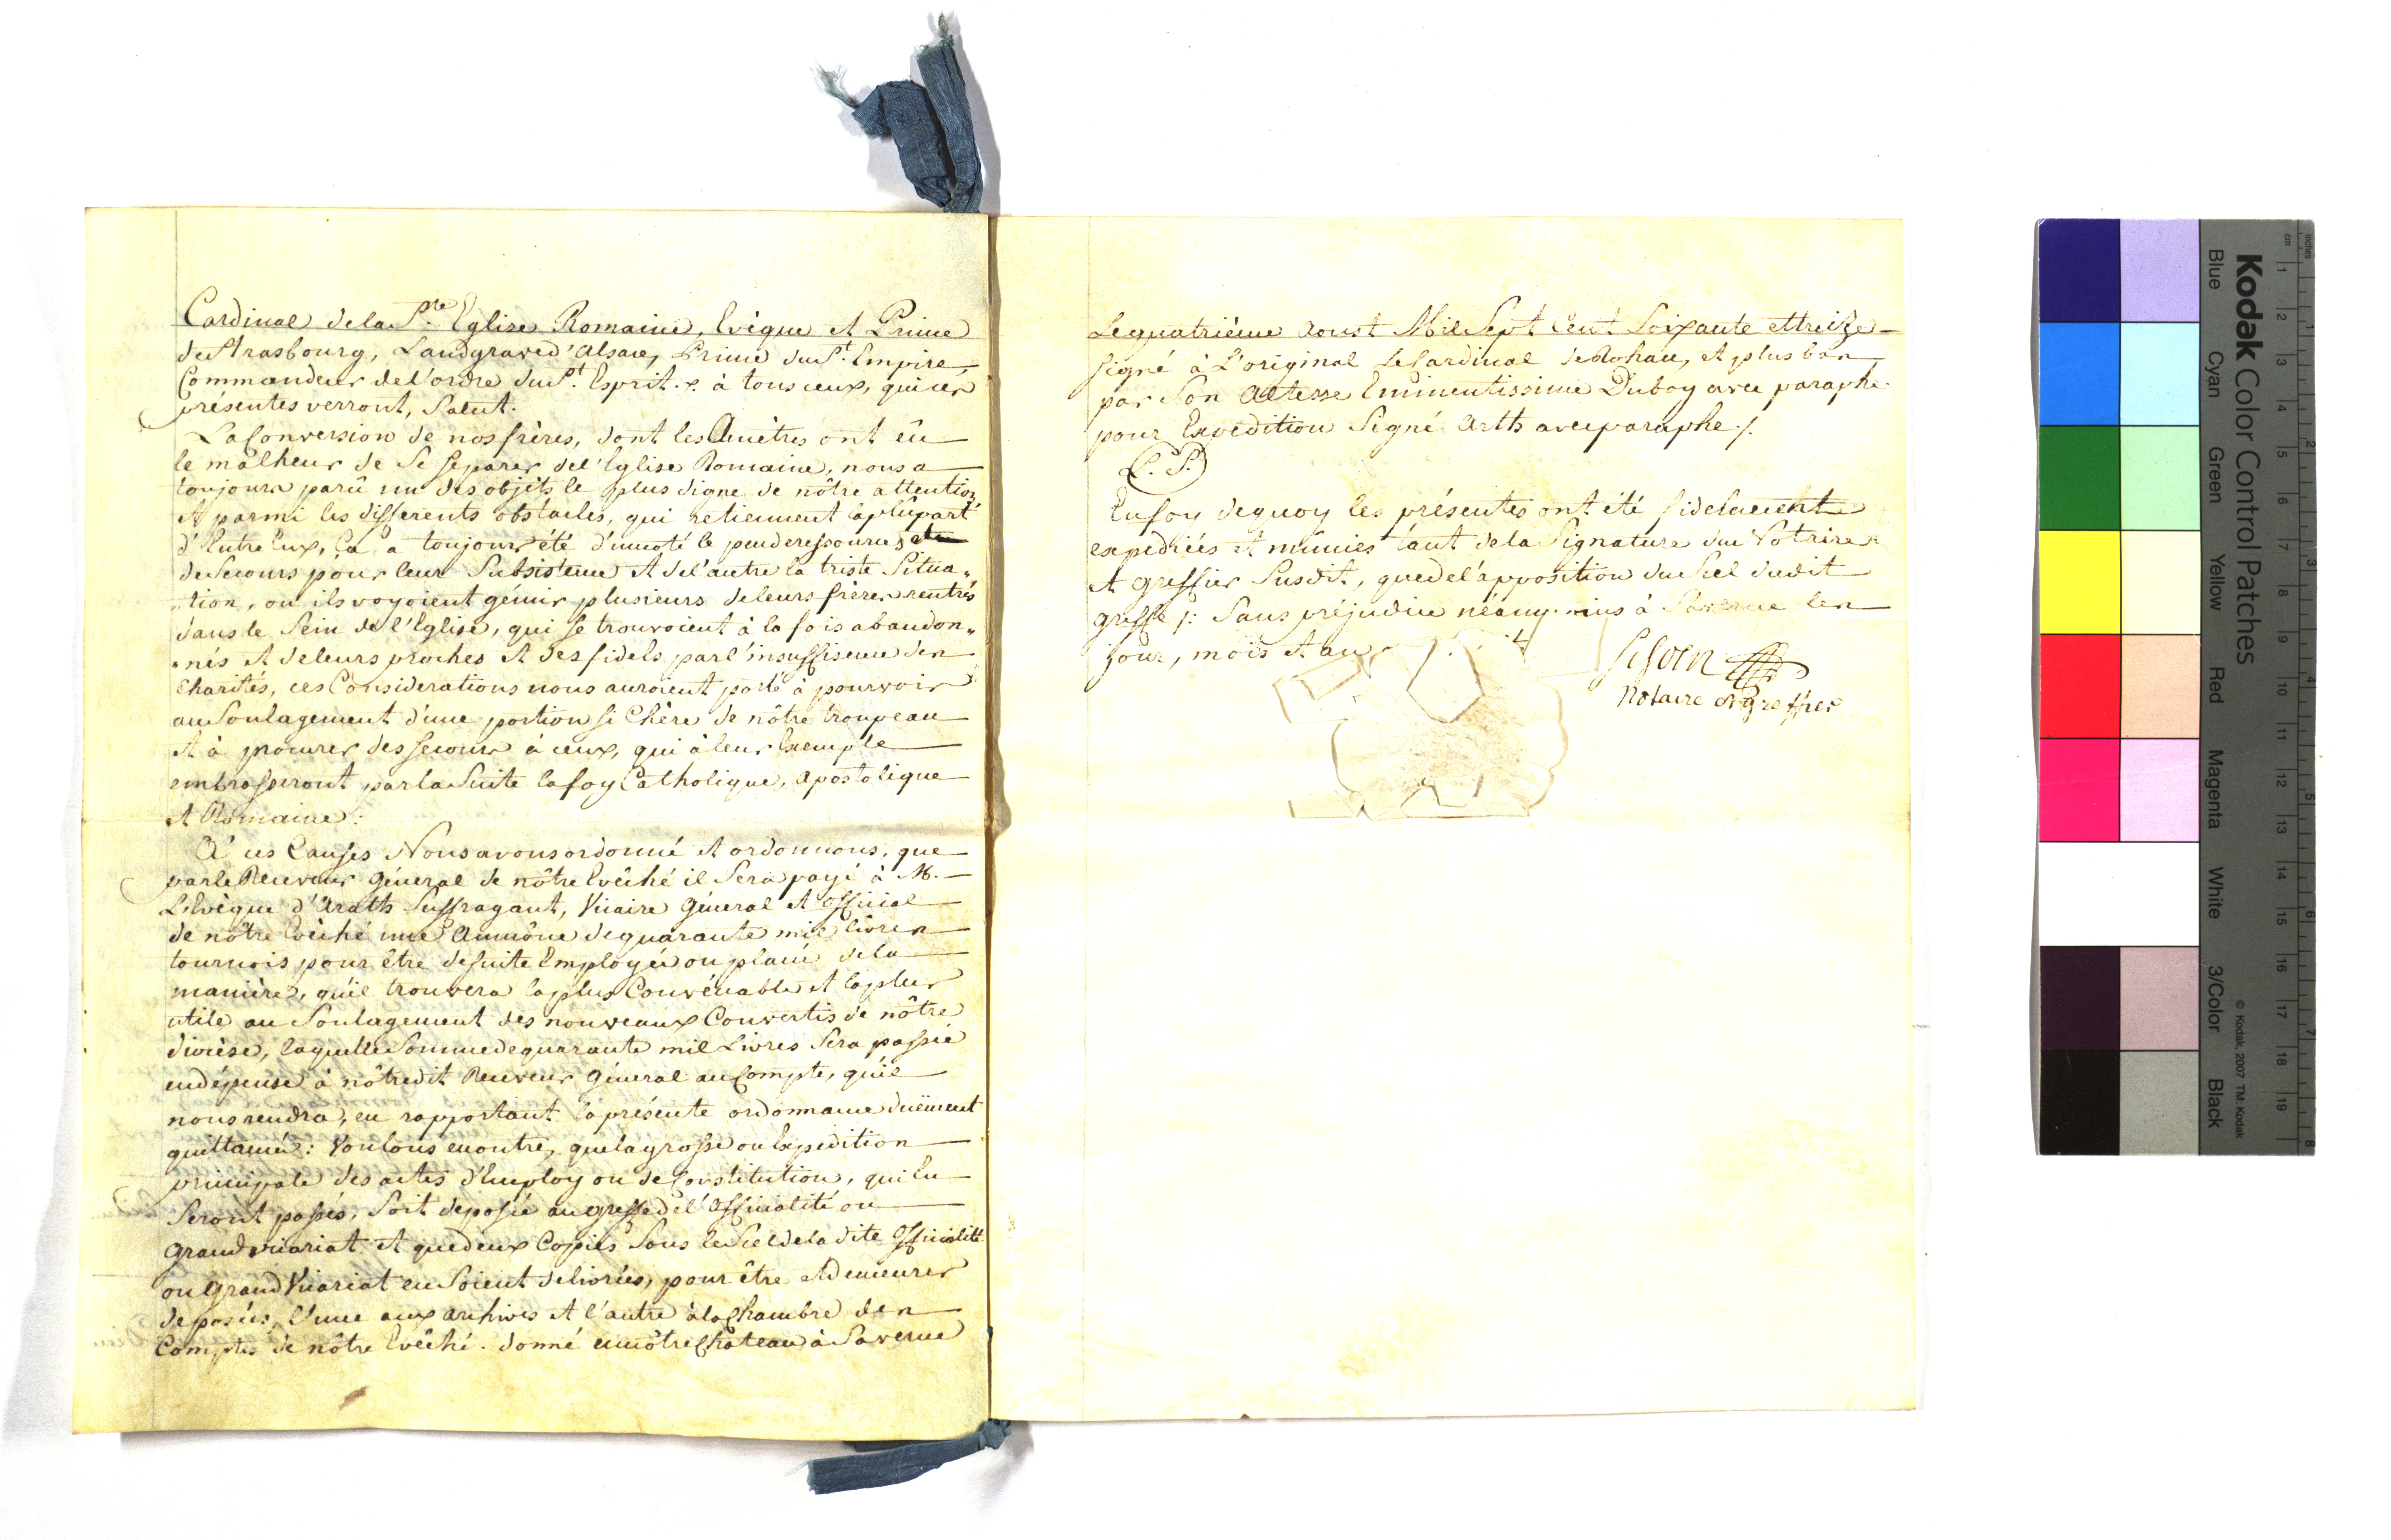 Cardinal de la S.te Eglise Romaine, Evêque et Prince
de Strasbourg, Landgrave d'alsace, Prince du S.t Empire,
Commandeur de l'ordre du S.t Esprit. à tous ceux, qui ces
présentes verront, Salut.
La Conversion de nos frères, dont les Ancêtres ont eû
le malheur de Se Separer de l'Eglise Romaine, nous a
toujours parû un des objèts le plus digne de nôtre attention
Et parmi les differents obstacles, qui retiennent la plûpart
d'Entre Eux, Ca a toujours été d'un coté le peu de ressources et
de Secours pour leur Subsistence et de l'autre la triste Situa„
„tion, ou ils voyoient gémir plusieurs de leurs frères rentrés
dans le Sein de l'Eglise, qui se trouvoient à la fois abandon„
„nés et de leurs proches et des fidels par l'insuffisence des
Charités, ces Considerations nous auroient porté à pourvoir
au Soulagement d'une portion si Chère de nôtre troupeau
et à procurer des secours à ceux, qui à leur Exemple
embrasseront par la Suite la foy Catholique, apostolique
et Romaine:
A' ces Causes Nous avons ordonné et ordonnons, que
par le Receveur Géneral de nôtre Evêché il Sera payé à M.
L'Evêque d'Arath Suffragant, Vicaire Géneral et official
de nôtre Evêché une Aumône de quarante mil livres
tournois pour être de suite Employée ou placée de la
manière, qu'il trouvera la plus Convénable et la plus
utile au Soulagement des nouveaux Convertis de nôtre
diocèse, laquelle Somme de quarante mil Livres Sera passée
en dépense à nôtredit Receveur Géneral au Compte, qu'il
nous rendra, en rapportant la présente ordonnance duëment
quittancée: Voulons en outre, que la grosse ou Expedition
principale des actes d'Employ ou de Constitution, qui En
Seront passés, Soit déposée au greffe de l'Officialité ou
grand vicariat et que deux Copies Sous le Scel de la dite Officialité
ou Grand Vicariat en Soient delivrées, pour être et demeurer
deposées, l'une aux archives et l'autre à la Chambre des
Comptes de nôtre Evêché. donné en nôtre Château à Saverne
Le quatrième Aoust Mil Sept Cent Soixante et treize
signé à L'original le Cardinal de Rohan, et plus bas
par Son Altesse Eminentissime Duboy avec paraphe.
pour Expedition Signé Arth avec paraphe ./.
(L. S.)
En foy de quoy les présentes ont été fidelement
expediées et mûnies tant de la Signature du Notaire
et Greffier Susdit, que de l'apposition du Scel dudit
greffe /: Sans préjudice néanmoins à Saverne les
jour, mois et an
Notaire et greffier
Kodak Color Control Patches
© Kodak, 2007 TM: Kodak
Inches
cm
1 2 3 4 5 6 7 8 9 10 11 12 13 14 15 16 17 18 19
1 2 3 4 5 6 7 8
Blue
Cyan
Green
Yellow
Red
Magenta
White
3/Color
Black